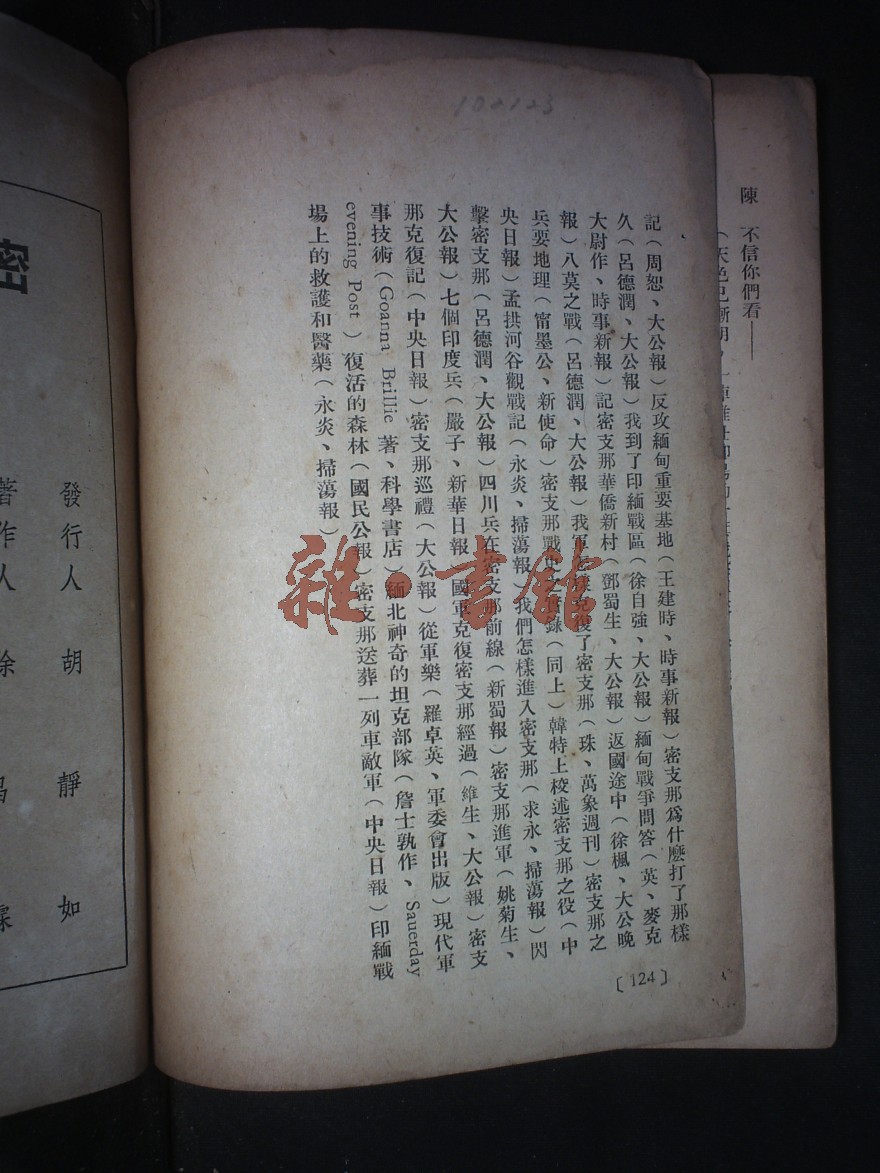 陳 不信你們看——
102123
記(周恕、大公報)反攻緬甸重要基地(王建時、時事新報)密支那爲什麽打了那樣
久(呂德潤、大公報)我到了印緬戰區(徐自強、大公報)緬甸戰爭問答(英、麥克
大尉作、時事新報)記密支那華僑新村(鄧蜀生、大公報)返國途中(徐楓、大公晚
報)八莫之戰(呂德潤、大公報)我軍怎樣克復了密支那(珠、萬象週刊)密支那之
兵要地理(甯墨公、新使命)密支那戰史之實錄(同上)韓特上校述密支那之役(中
央日報)孟拱河谷觀戰記(永炎、掃蕩報)我們怎樣進入密支那(求永、掃蕩報)閃
擊密支那(呂德潤、大公報)四川兵在密支那前線(新蜀報)密支那進軍(姚菊生、
大公報)七個印度兵(嚴子、新華日報 國軍克復密支那經過(維生、大公報)密支
那克復記(中央日報)密支那巡禮(大公報)從軍樂(羅卓英、軍委會出版)現代軍
事技術(Goanna Brillie 著、科學書店)緬北神奇的坦克部隊(詹士孰作、Sauerday
evening Post )復活的森林(國民公報)密支那送葬一列車敵軍(中央日報)印緬戰
場上的救護和醫藥(永炎、掃蕩報)
〔124〕
雜·書館
密
發行人 胡靜如
著作人 徐昌霖